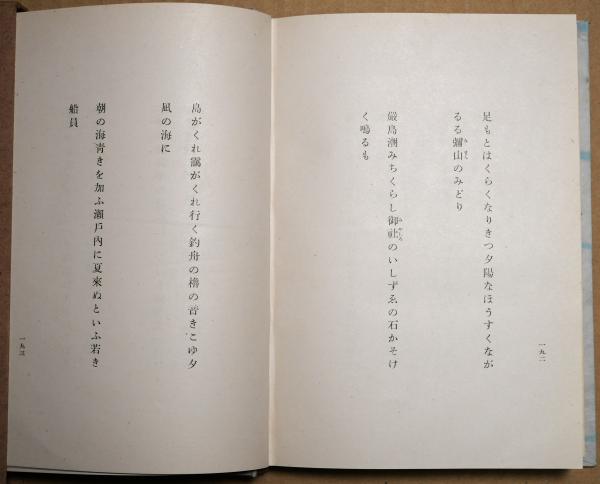 足もとはくらくなりきつ夕陽なほうすくなが
るる彌山のみどり
嚴島潮みちくらし御社のいしずゑの石かそけ
く鳴るも
一九二
島がくれ靄がくれ行く釣舟の櫓の音きこゆ夕
凪の海に
朝の海青きを加ふ瀬戸內に夏來ぬといふ若き
船員
一九三